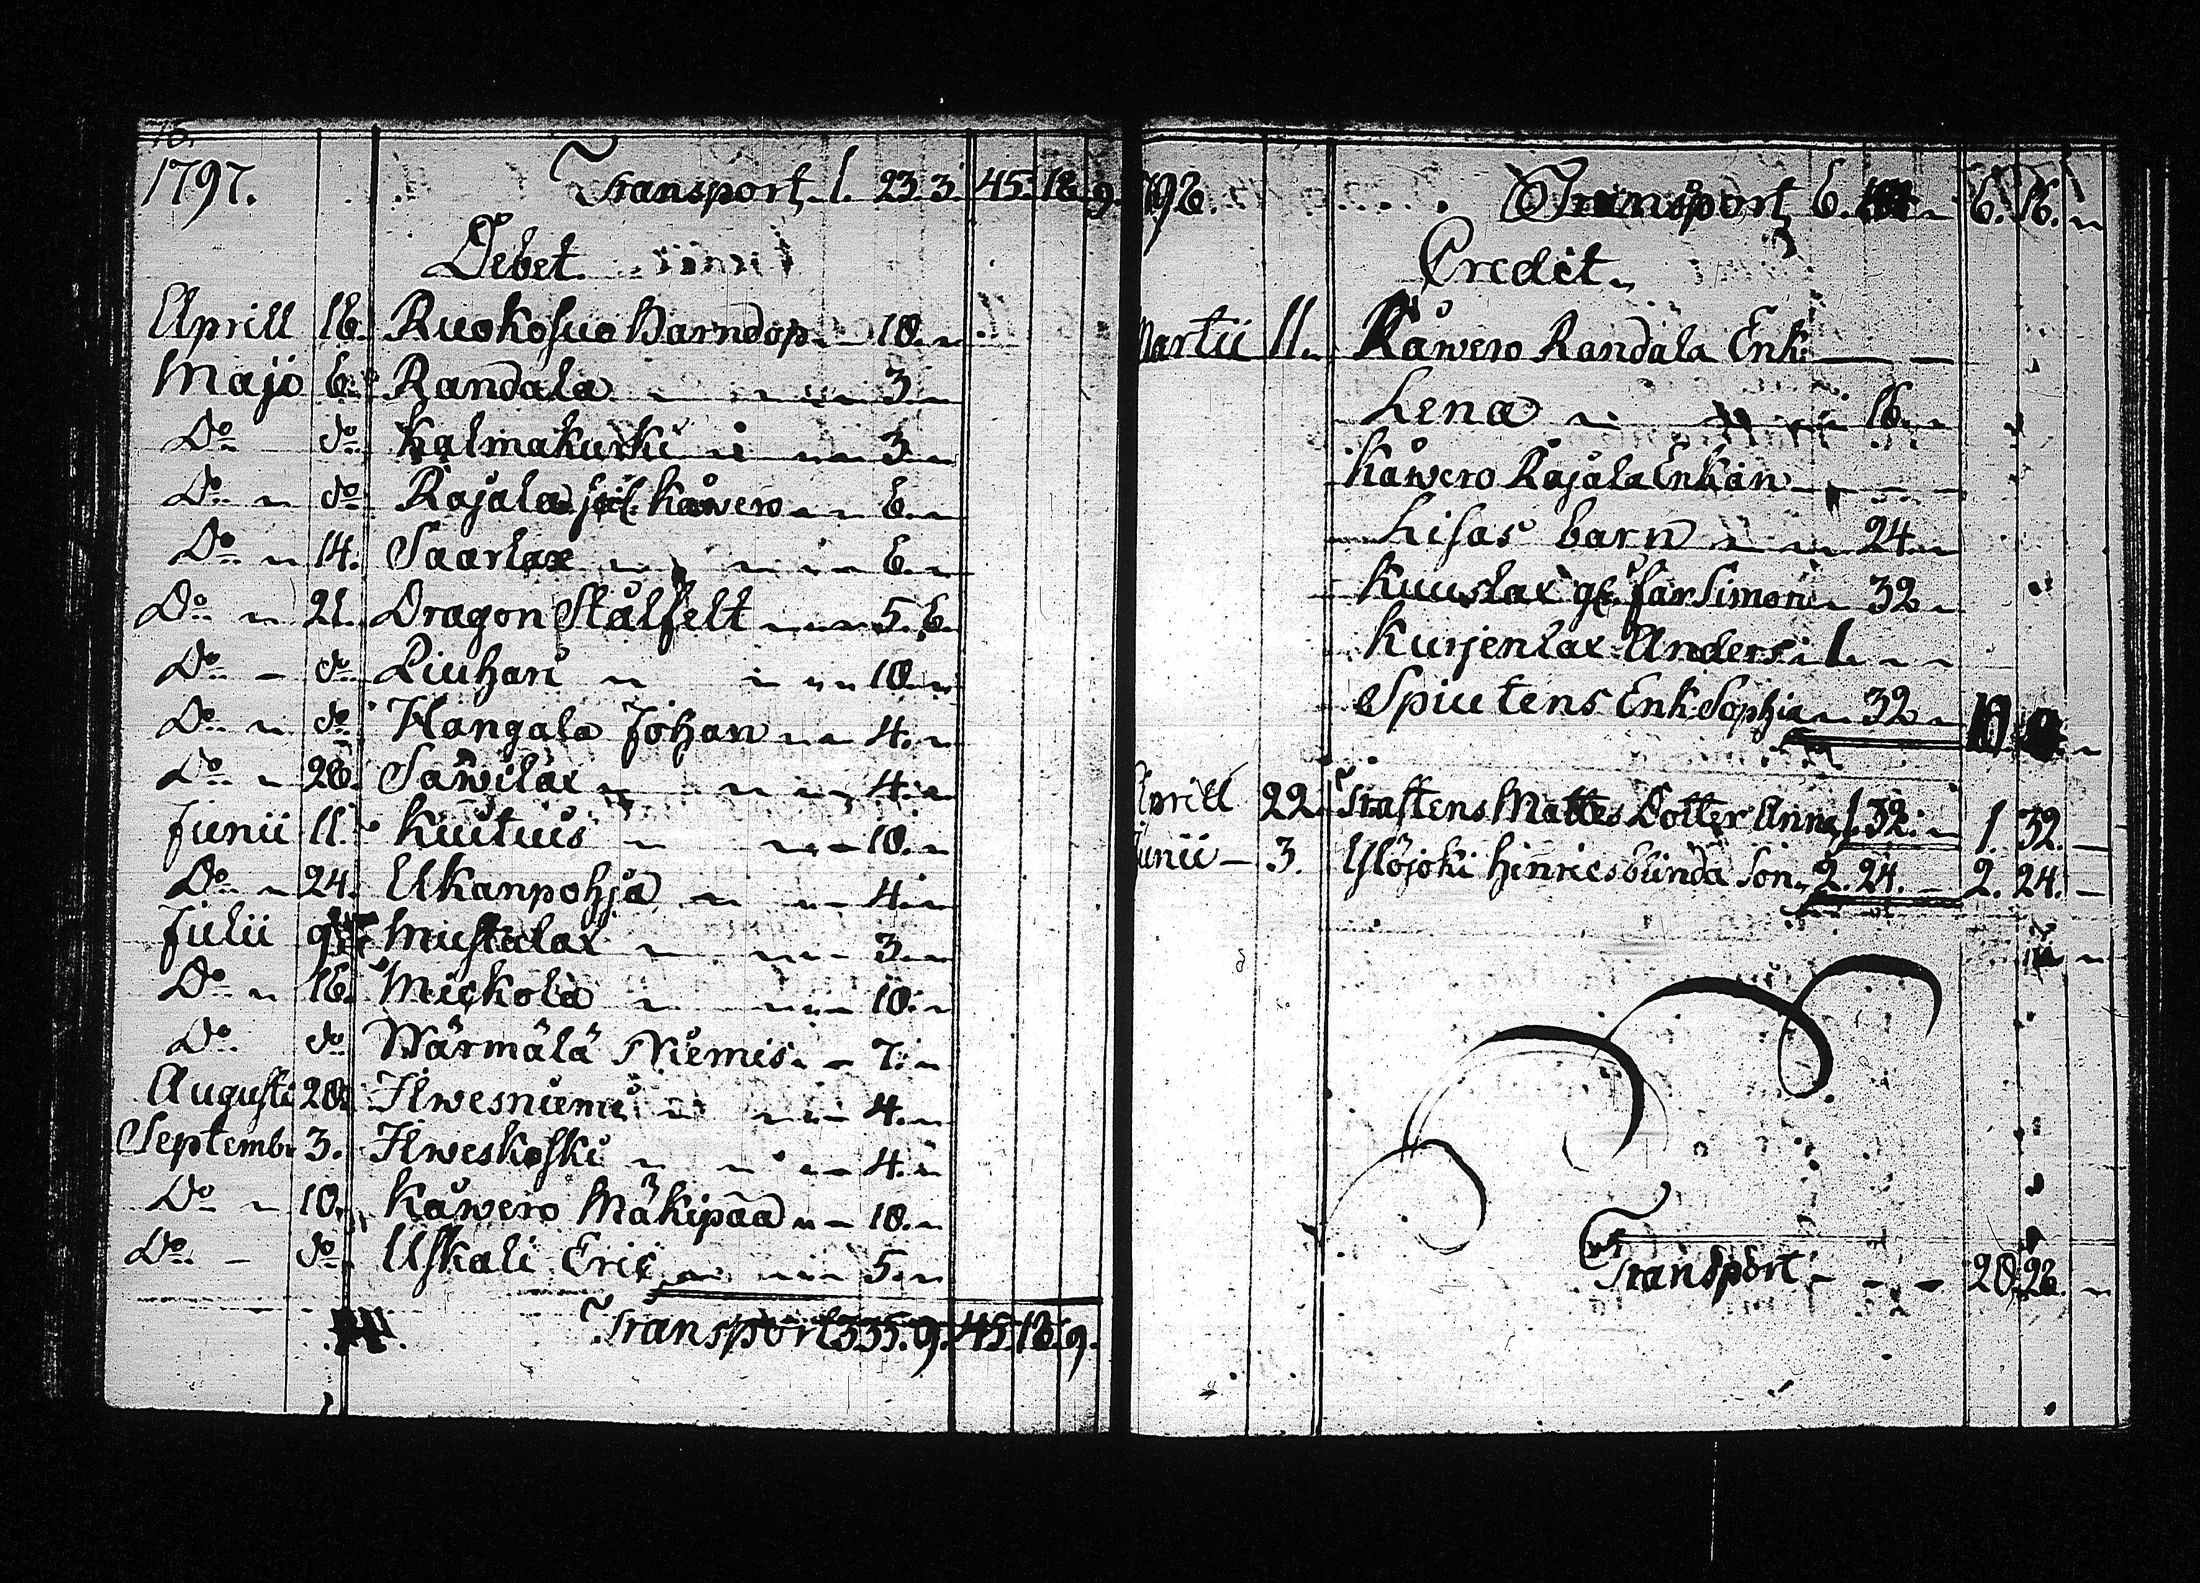 1797. Transport 1. 23. 3. 45. 18. 9.
Debet.
Aprill 16. Ruokosuo Barndop 10.
Majo 6. Randala 3.
Do do Kalmakurki 3.
Do do Rajala Kåwero 6.
Do 14. Saarlax 6.
Do 21. Dragon Stålfelt 5. 6.
Do do Liuhari 10.
Do do Hangala Johan 4.
Do 28. Sawilax 4.
Junii 11. Kuutus 10.
Do 24. Ukanpohja 4.
Julii 9. Mustulax 3.
Do 16. Mickola 10.
Do do Wärmälä Niemis 7.
Augusti 20. Ilwesniemi 4.
Septembr 3. Ilweskoski 4.
Do 10. Kåwero Mäkipää 10.
Do do Uskali Eric 5.
Transport 335. 9. 45. 18. 9.
Transport 6. 6. 16.
Credit
Martii 11. Kåwero Randala Enk.
Lena 16.
Kåwero Rajala Enkan
Lisas barn 24.
Kuuslax gl. far Simon 32
Kurjenlax Anders 1.
Spiutens Enk Sophia 32 10
Aprill 22. Trastens Mattes Dotter Anna 1. 32. 1. 32.
Junii 3. Ylöjoki Hinrics bunda Son 2. 24. 2. 24.
Transport 20. 28.